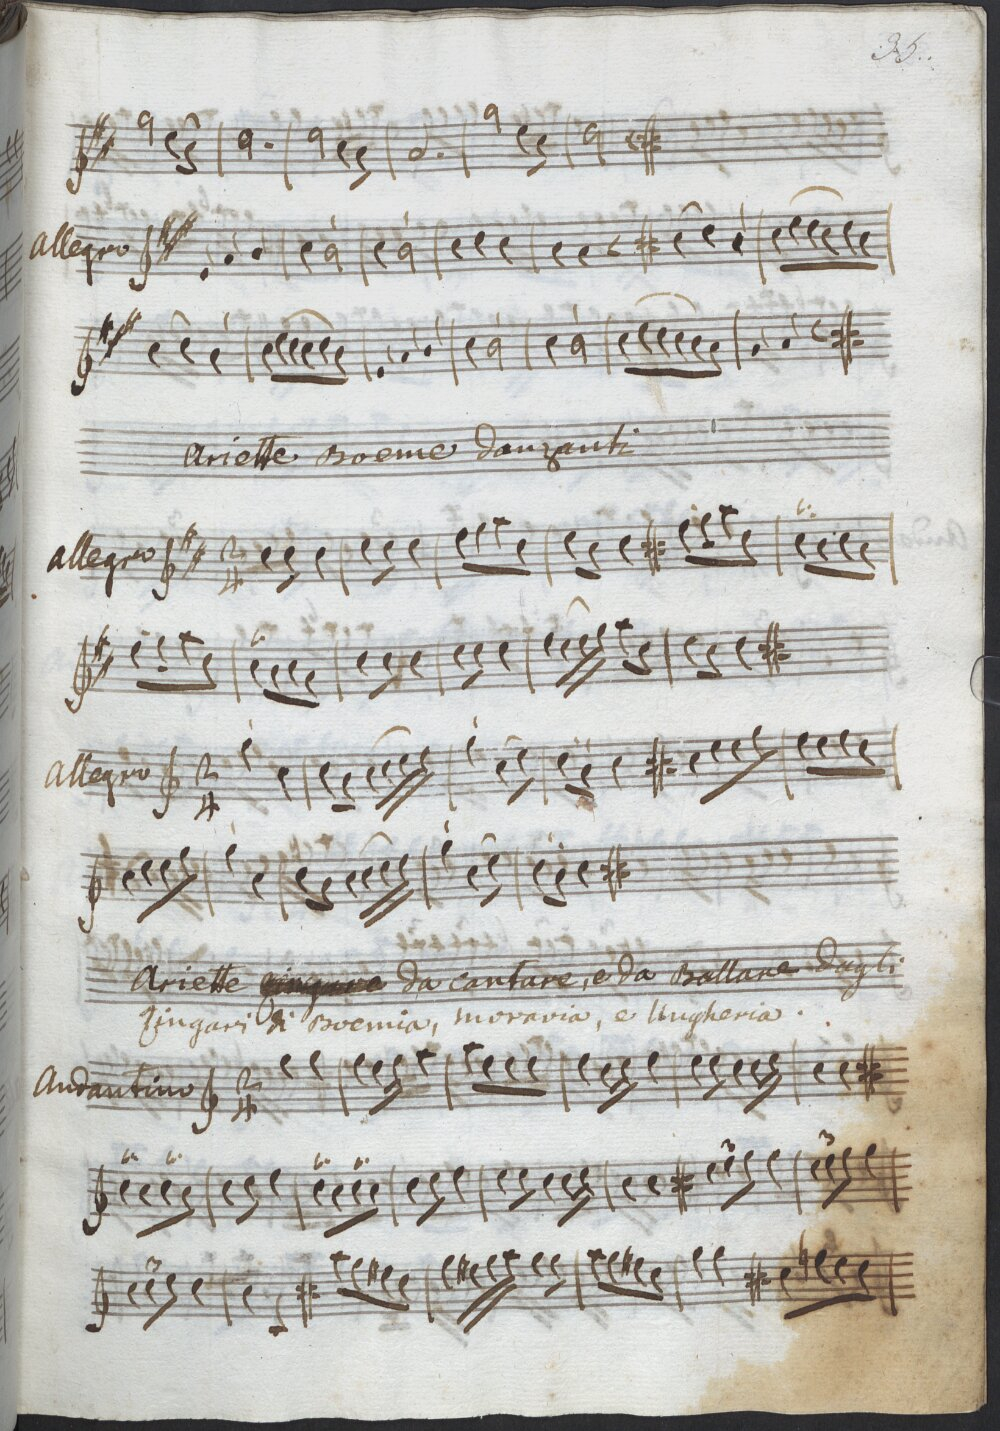 35.
allegro
Ariette Boeme danzanti
allegro 2/4
allegro 2/4
Ariette da cantare, e da Ballare dagli
Zingari di Boemia, moravia, e Ungheria.
Andantino 2/4
6. 6. 6. 6. 3 3
3